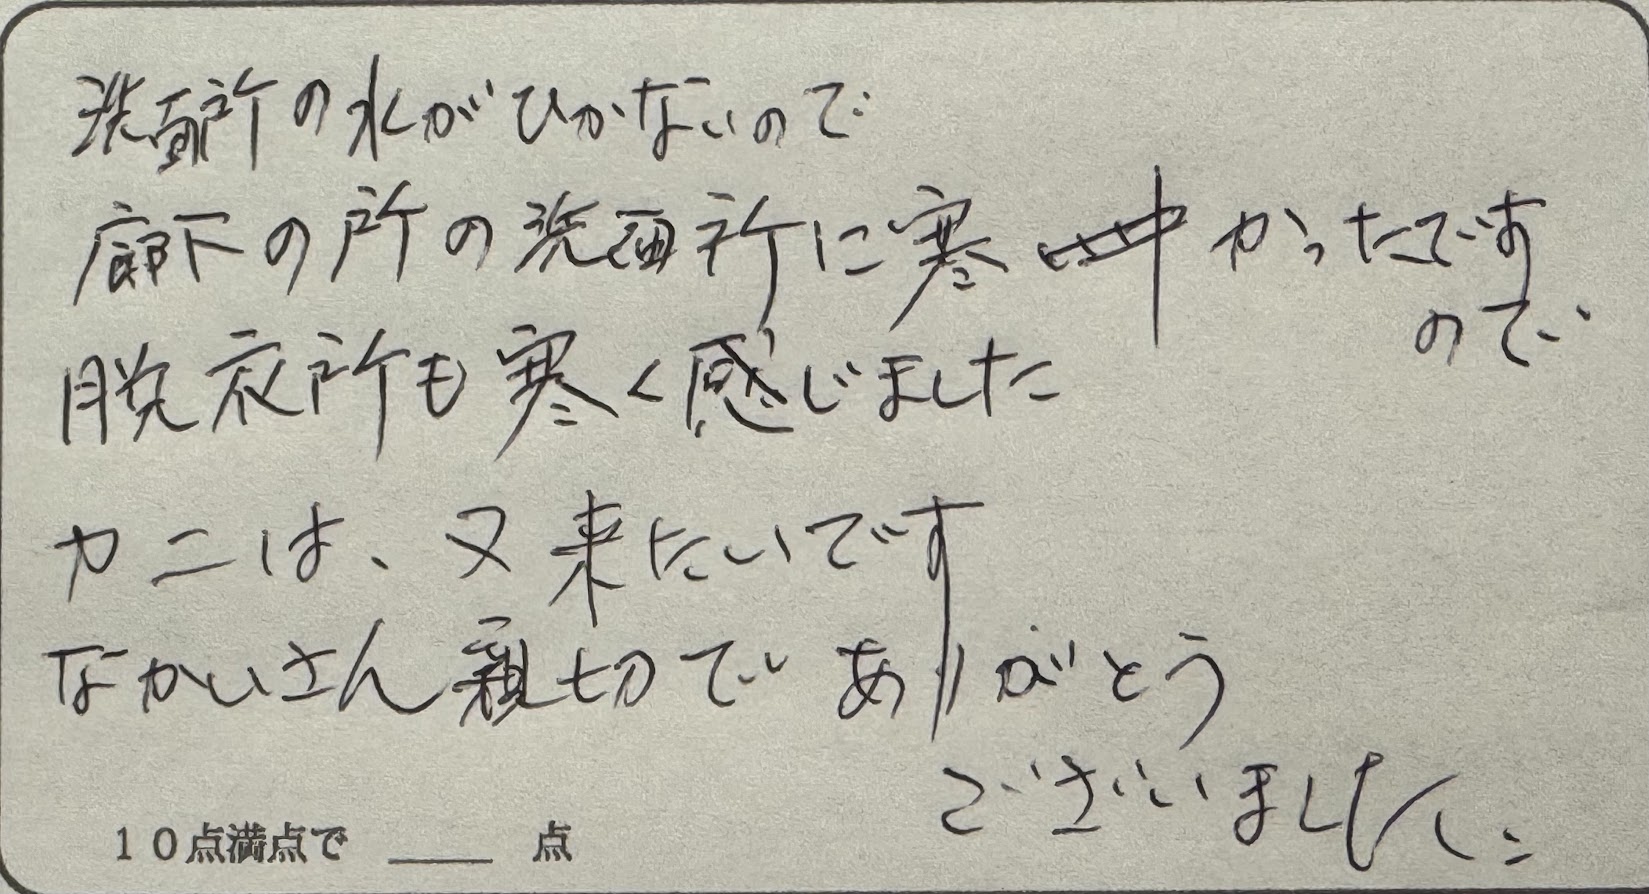 洗面所の水がひかないので
廊下の所の洗面所に寒かったですので
脱衣所も寒く感じました
カニは、又来たいです
なかいさん親切でありがとう
ございました
10点満点で ___ 点